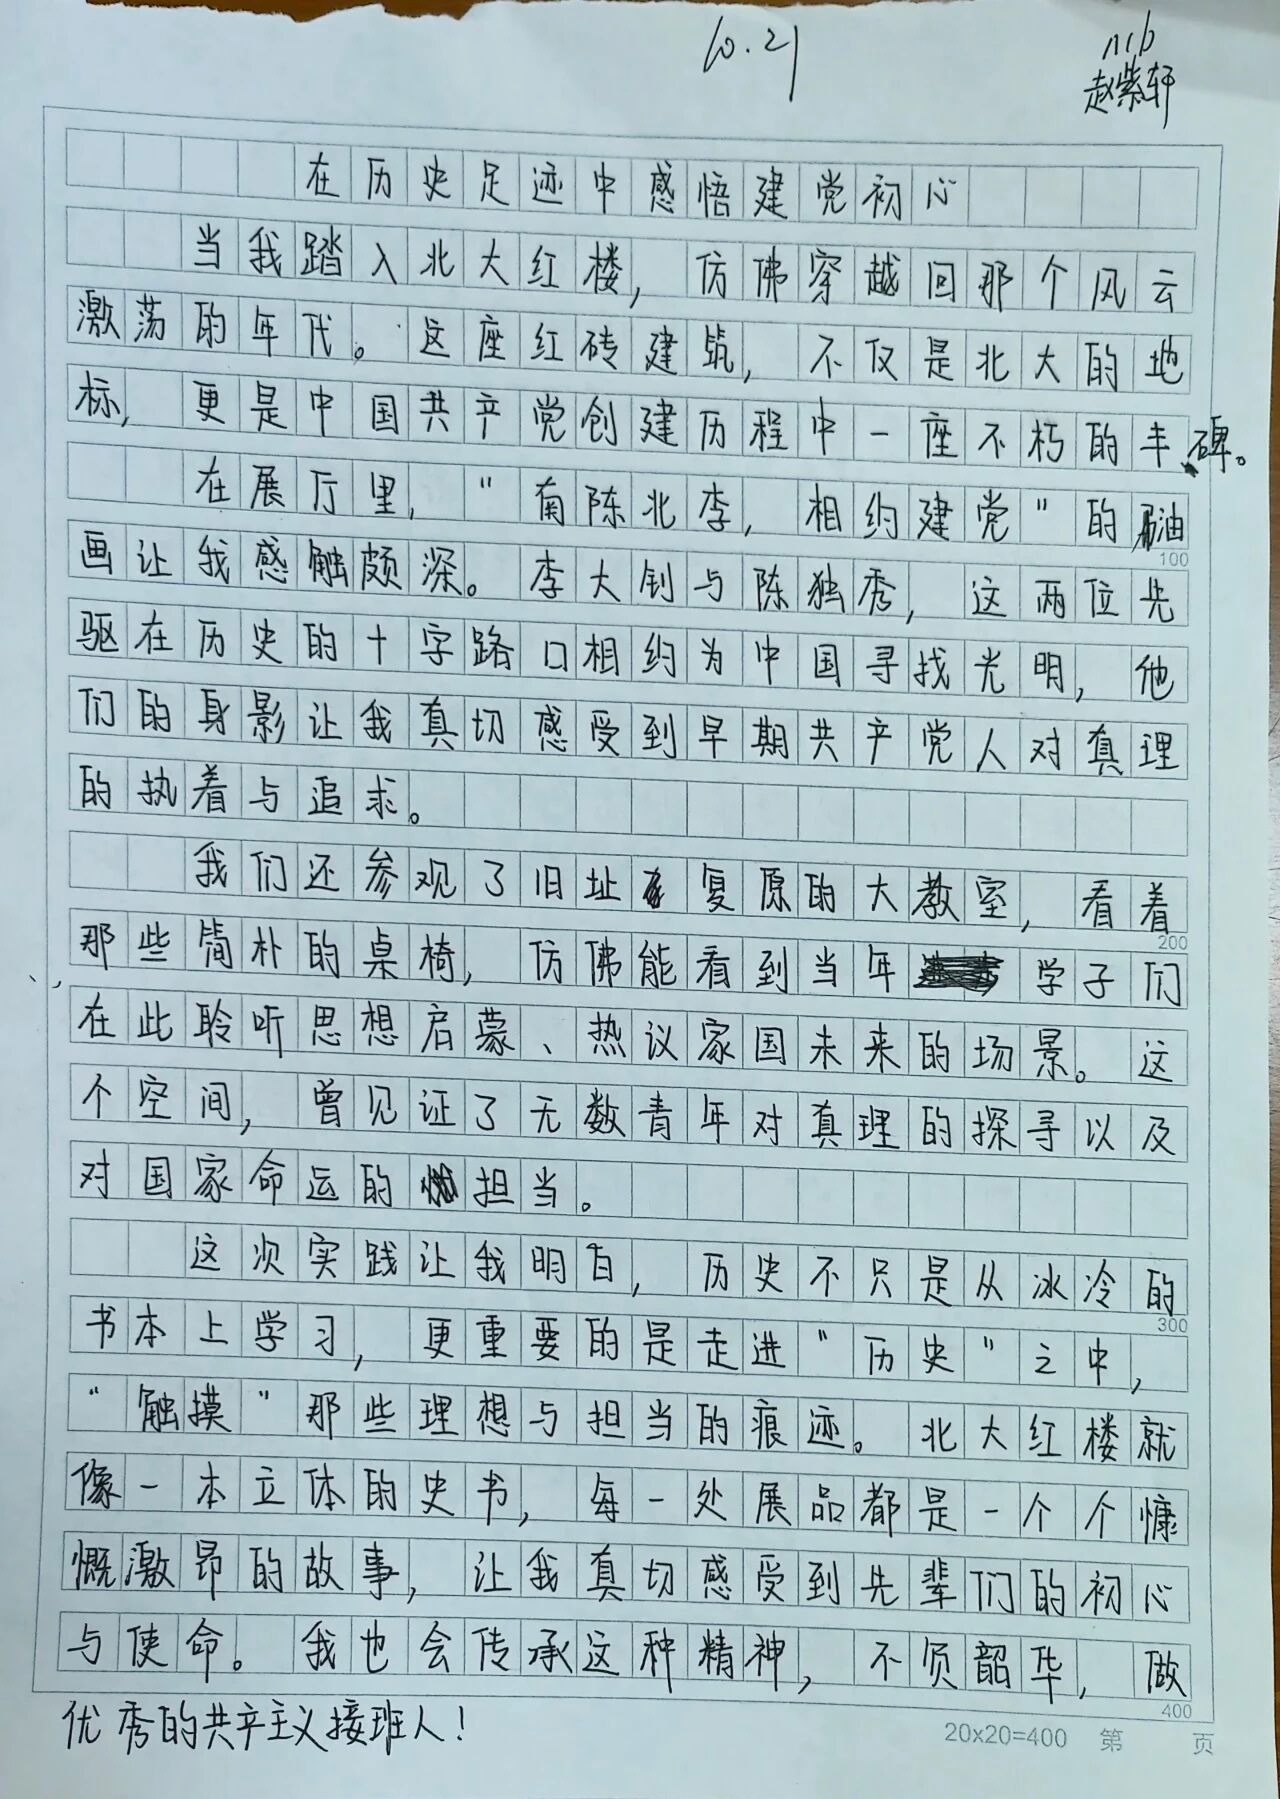 10.21
赵紫轩
在历史足迹中感悟建党初心
当我踏入北大红楼,仿佛穿越回那个风云
激荡的年代。这座红砖建筑,不仅是北大的地
标,更是中国共产党创建历程中一座不朽的丰碑。
在展厅里,"南陈北李,相约建党"的油
100
画让我感触颇深。李大钊与陈独秀,这两位先
驱在历史的十字路口相约为中国寻找光明,他
们的身影让我真切感受到早期共产党人对真理
的执着与追求。
我们还参观了旧址复原的大教室,看着
200
那些简朴的桌椅,仿佛能看到当年学子们
在此聆听思想启蒙、热议家国未来的场景。这
个空间,曾见证了无数青年对真理的探寻以及
对国家命运的担当。
这次实践让我明白,历史不只是从冰冷的
300
书本上学习,更重要的是走进"历史"之中,
"触摸"那些理想与担当的痕迹。北大红楼就
像一本立体的史书,每一处展品都是一个个慷
慨激昂的故事,让我真切感受到先辈们的初心
与使命。我也会传承这种精神,不负韶华,做
400
优秀的共产主义接班人!
20x20=400 第 页